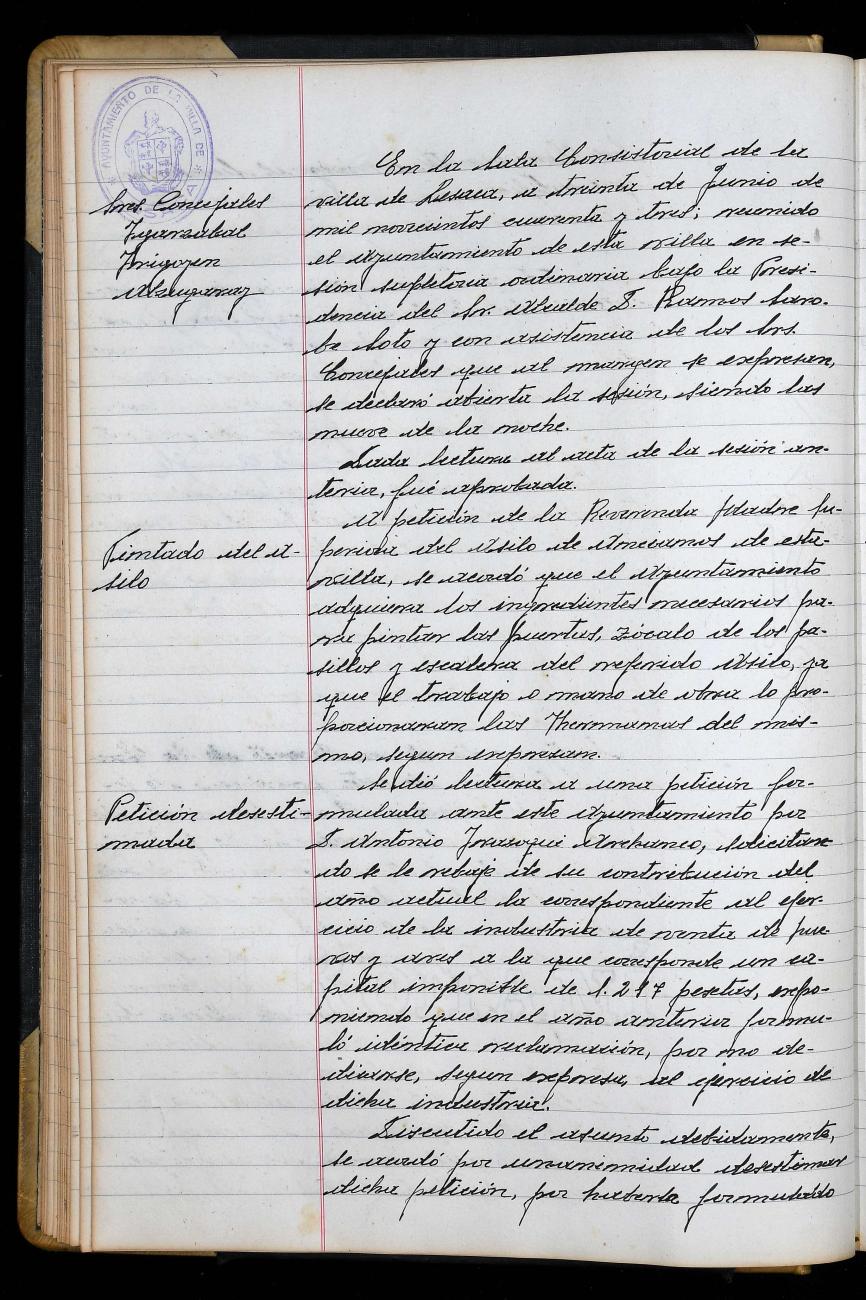 AYUNTAMIENTO DE LA VILLA DE
Sres. Concejales
Ygarzabal
Yrigoyen
Alzugaray
En la Sala Consistorial de la
villa de Lesaca, a treinta de Junio de
mil novecientos cuarenta y tres; reunido
el Ayuntamiento de esta villa en se-
sión supletoria ordinaria bajo la Presi-
dencia del Sr. Alcalde D. Ramos Saro-
be Soto y con asistencia de los Srs.
Concejales que al margen se expresan,
se declaró abierta la sesión, siendo las
nueve de la noche.
Dada lectura al acta de la sesión an-
terior, fué aprobada.
Pintado del A-
silo
A petición de la Reverenda Madre Su-
periora del Asilo de Ancianos de esta
villa, se acordó que el Ayuntamiento
adquiera los ingredientes necesarios pa-
ra pintar las puertas, zócalo de los pa-
sillos y escalera del referido Asilo, ya
que el trabajo o mano de obra lo pro-
porcionaran las Hermanas del mis-
mo, segun expresan.
Petición desesti-
mada
Se dió lectura a una petición for-
mulada ante este Ayuntamiento por
D. Antonio Yrazoqui solicitan-
do se le rebaje de su contribución del
año actual la correspondiente al ejer-
cicio de la industria de venta de hue-
vos y aves a la que corresponde un ca-
pital imponible de 1.297 pesetas, expo-
niendo que en el año anterior formu-
ló idéntica reclamación, por no de-
dicarse, segun expresa, al ejercicio de
dicha industria.
Discutido el asunto debidamente,
se acordó por unanimidad desestimar
dicha petición, por haberla formulado